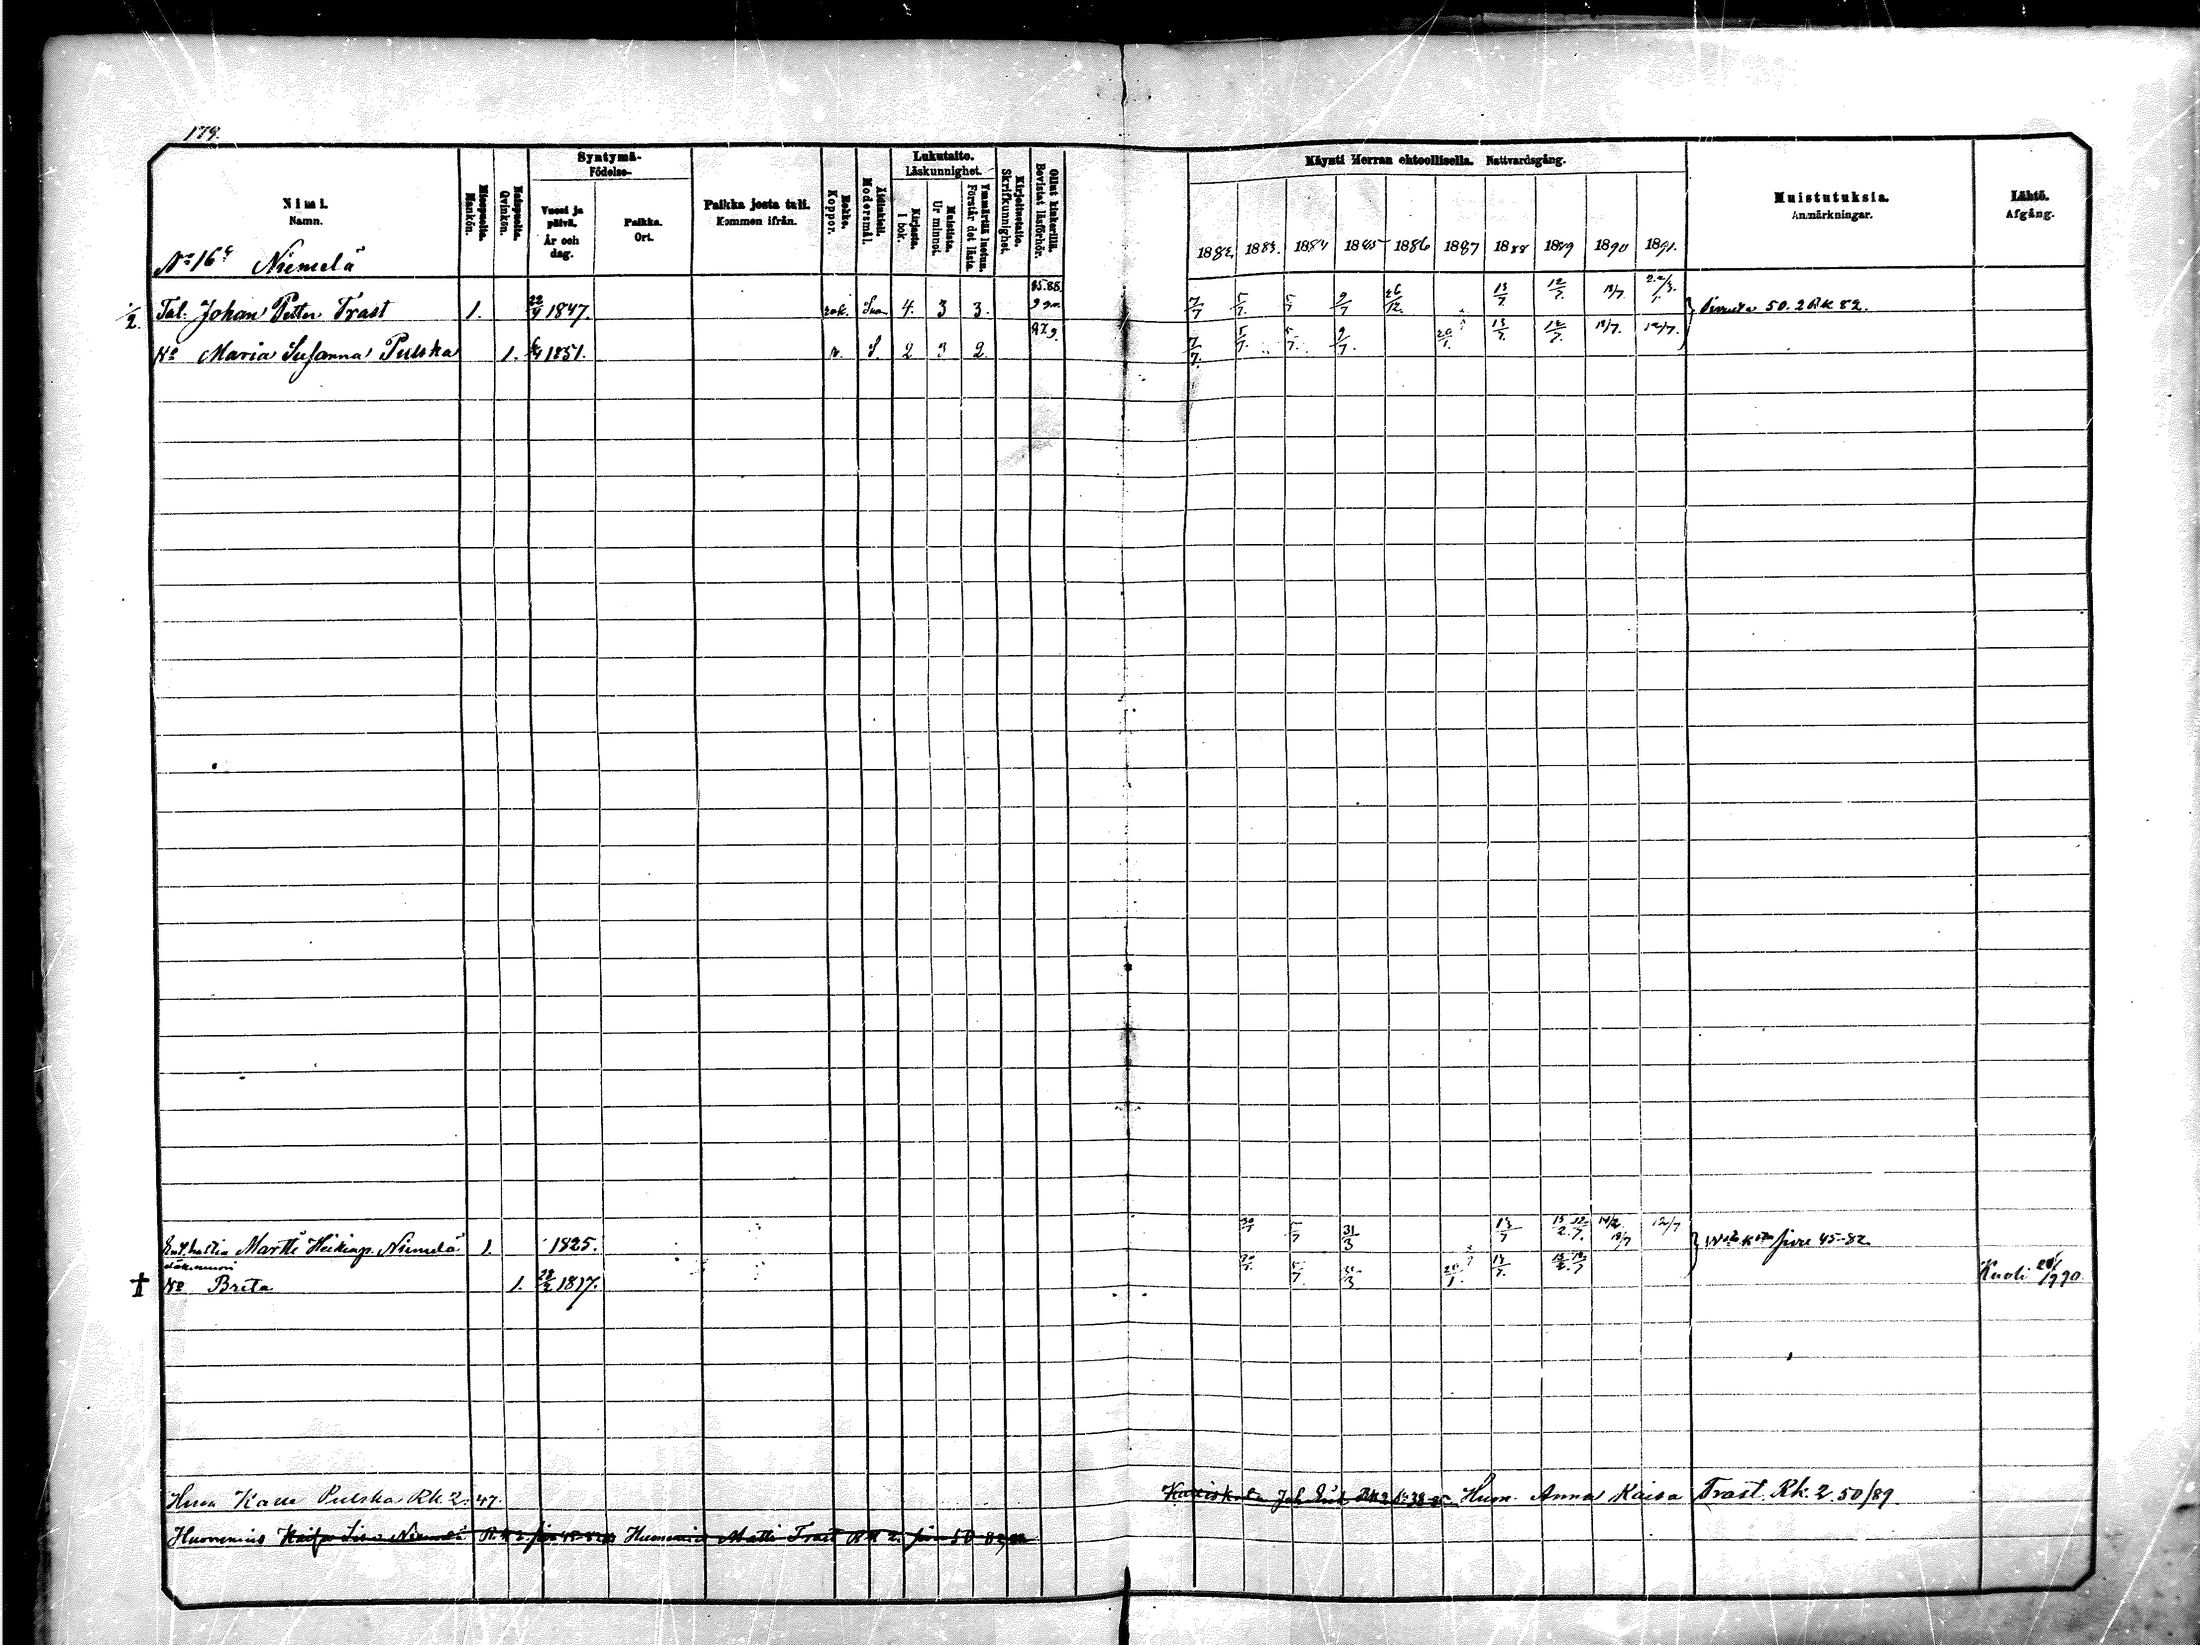 179.
Nimi.
Namn.
Miespuolia.
Mankön.
Vaimopuolia.
Qvinkön.
Syntymä-
Födelse-
Vuosi ja päivä.
År och dag.
Paikka.
Ort.
Paikka josta tuli.
Kommen ifrån.
Rokko.
Koppor.
Äidinkieli.
Modersmål.
Lukutaito.
Läskunnighet.
Kirjasta.
I bok.
Muistista.
Ur minnet.
Ymmärtää luetun.
Förstår det lästa.
Kirjoitustaito.
Skrifkunnighet.
Ollut kinkerillä.
Bevistat läsförhör.
Käynti Herran ehtoollisella. Nattvardsgång.
1882. 1883. 1884 1885 1886 1887 1888 1889 1890 1891.
Muistutuksia.
Anmärkningar.
Lähtö.
Afgång.
No 16 Niemelä
1/2. Tal. Johan Petter Trast 1. 22/4 1847. rok. Suo 4. 3 3. 85.88. 7/7 5/7. 5/7 9/7 26/12. 13/7. 12/7. 13/7 50. 2 RK 82.
Wo Maria Susanna Pulska 1. 1851. r. S. 2 3 2. 7/7. 5/7. 5/7. 9/7. 20/1. 13/7. 12/7. 13/7. 12/7.
Martti Heikinp. Niemelä 1. 1825. 30/7 5/7 31/3 13/7 12/7. 13/7 12/7 sivu 45-82.
† Wo Breta 1. 1817. 5/7. 31/3 20/1. 13/7. Kuoli 90.
Huon Kalle Pulska Rk. 2. 47. Joh Erik Huon. Anna Kaisa Trast. Rk. 2. 50/89
Huonemies Kaisa Niemelä Rk 2. siv 45-82 Huonemies Matti Trast RK 2. siv 50-82